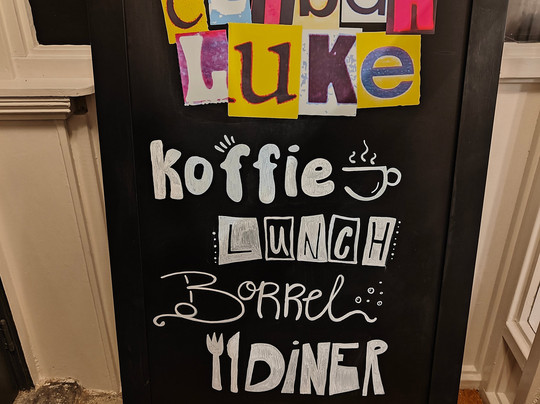 eetbar
Luke
Koffie
LUNCH
BORREL
DINER